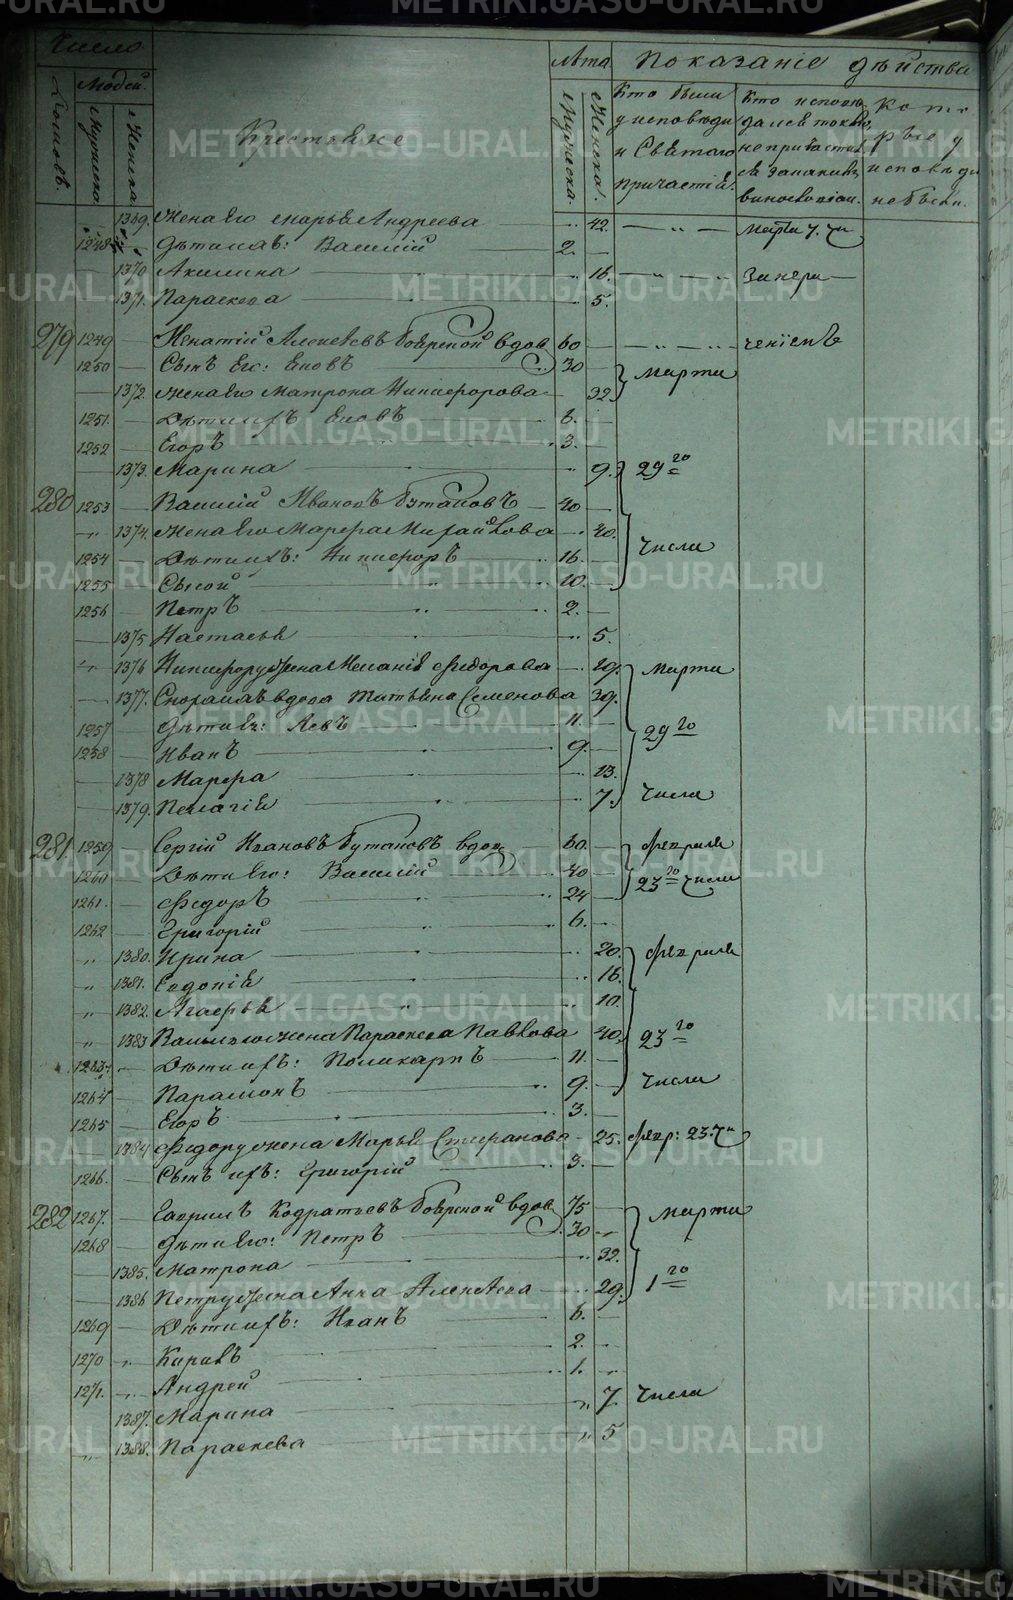 Число
Лѣта
Показаніе дѣйства
Домовъ.
Людей.
Мужеска.
Женска.
Крестьяне
Мужеска.
Женска.
Кто были
у исповѣди
и Святаго
причастія.
Кто исповѣ
дался токмо
не причастил
ся за каким
винословіем.
Кото
рые у
исповѣди
не были.
1369. Жена Его Марья Андреева 42. Марта 7. чи
1248 Дѣти ихъ: Василій 2.
1370 Акилина 16. За нера
1371. Параскева 5.
279 1249 Игнатій Алексѣевъ Боярской вдов 60 ченіемъ
1250 Сынъ Его: Еновъ 30
1372. Жена Его Матрона Никифорова 32. Марта
1251. Дѣти ихъ Еновъ 8.
1252 Егоръ 3.
1373. Марина 9. 29го
280 1253 Василій Ивановъ Бутаковъ 40
1374. Жена Его Марфа Михайлова 40.
1254 Дѣти ихъ: Никифоръ 16. Числа
1255 Сысой 10.
1256 Петръ 2.
1375 Настасья 5.
1376 Никифору Жена Меланія Федорова 19. Марта
1377. Снохами вдова Татьяна Семенова 39.
1257 Дѣти Ея: Левъ 11. 29го
1258 Иванъ 9.
1378 Марфа 13.
1379. Пелагія 7. Числа
281. 1259 Сергій Ивановъ Бутаковъ вдов 60. Февраля
1260 Дѣти Его: Василій 40 23го Числа
1261. Федоръ 24
1262 Григорій 6.
1380. Ирина 20. Февраля
1381. Евдокія 16.
1382. Агафья 10.
1383 Василью жена Параскева Павлова 40. 23го
1263. Дѣти ихъ: Поликарпъ 11.
1264 Парамонъ 9. Числа
1265 Егоръ 3.
1384 Федору жена Марья Стефанова 25. Февр: 23. чи
1266. Сынъ ихъ: Григорій 3.
282 1267. Гаврилъ Кодратьевъ Боярской вдов 75 Марта
1268 Дѣти Его: Петръ 30
1385. Матрона 32.
1386 Петру Жена Анна Алексѣева 29. 1го
1269 Дѣти ихъ: Иванъ 6.
1270 Кирилъ 2.
1271. Андрей 1.
1387. Марина 7. Числа
1388. Параскева 5
METRIKI.GASO-URAL.RU